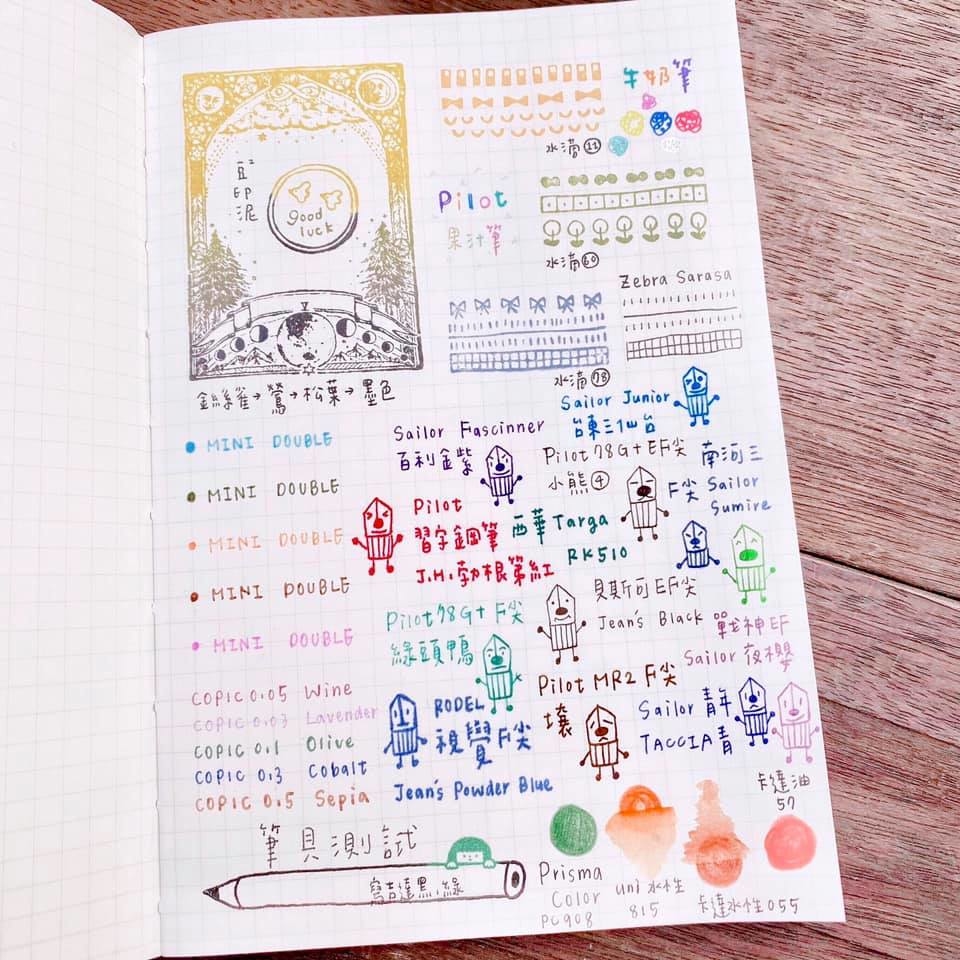 豆印泥
good
luck
金絲雀→鶯→松葉→墨色
牛奶筆
水滴⑪
Pilot
果汁筆
水滴㊿
Zebra Sarasa
水滴78
MINI DOUBLE
MINI DOUBLE
MINI DOUBLE
MINI DOUBLE
MINI DOUBLE
COPIC 0.05 Wine
COPIC 0.03 Lavender
COPIC 0.1 Olive
COPIC 0.3 Cobalt
COPIC 0.5 Sepia
Sailor Fascinner
百利金紫
Sailor Junior
台東三仙台
Pilot 78G+ EF尖
小熊④
南河三
F尖 Sailor
Sumire
Pilot
習字鋼筆
J.H.勃根第紅
西華 Targa
RK510
貝斯可 EF尖
Jean's Black
Pilot 78G+ F尖
綠頭鴨
戰神EF
Sailor 夜櫻
Pilot MR2 F尖
壤
RODEL
視覺 F尖
Jean's Powder Blue
Sailor 青年
TACCIA青
筆具測試
寫吉達黑,綠
Prisma
Color
PC908
uni 水性
815
卡達水性055
卡達油
57